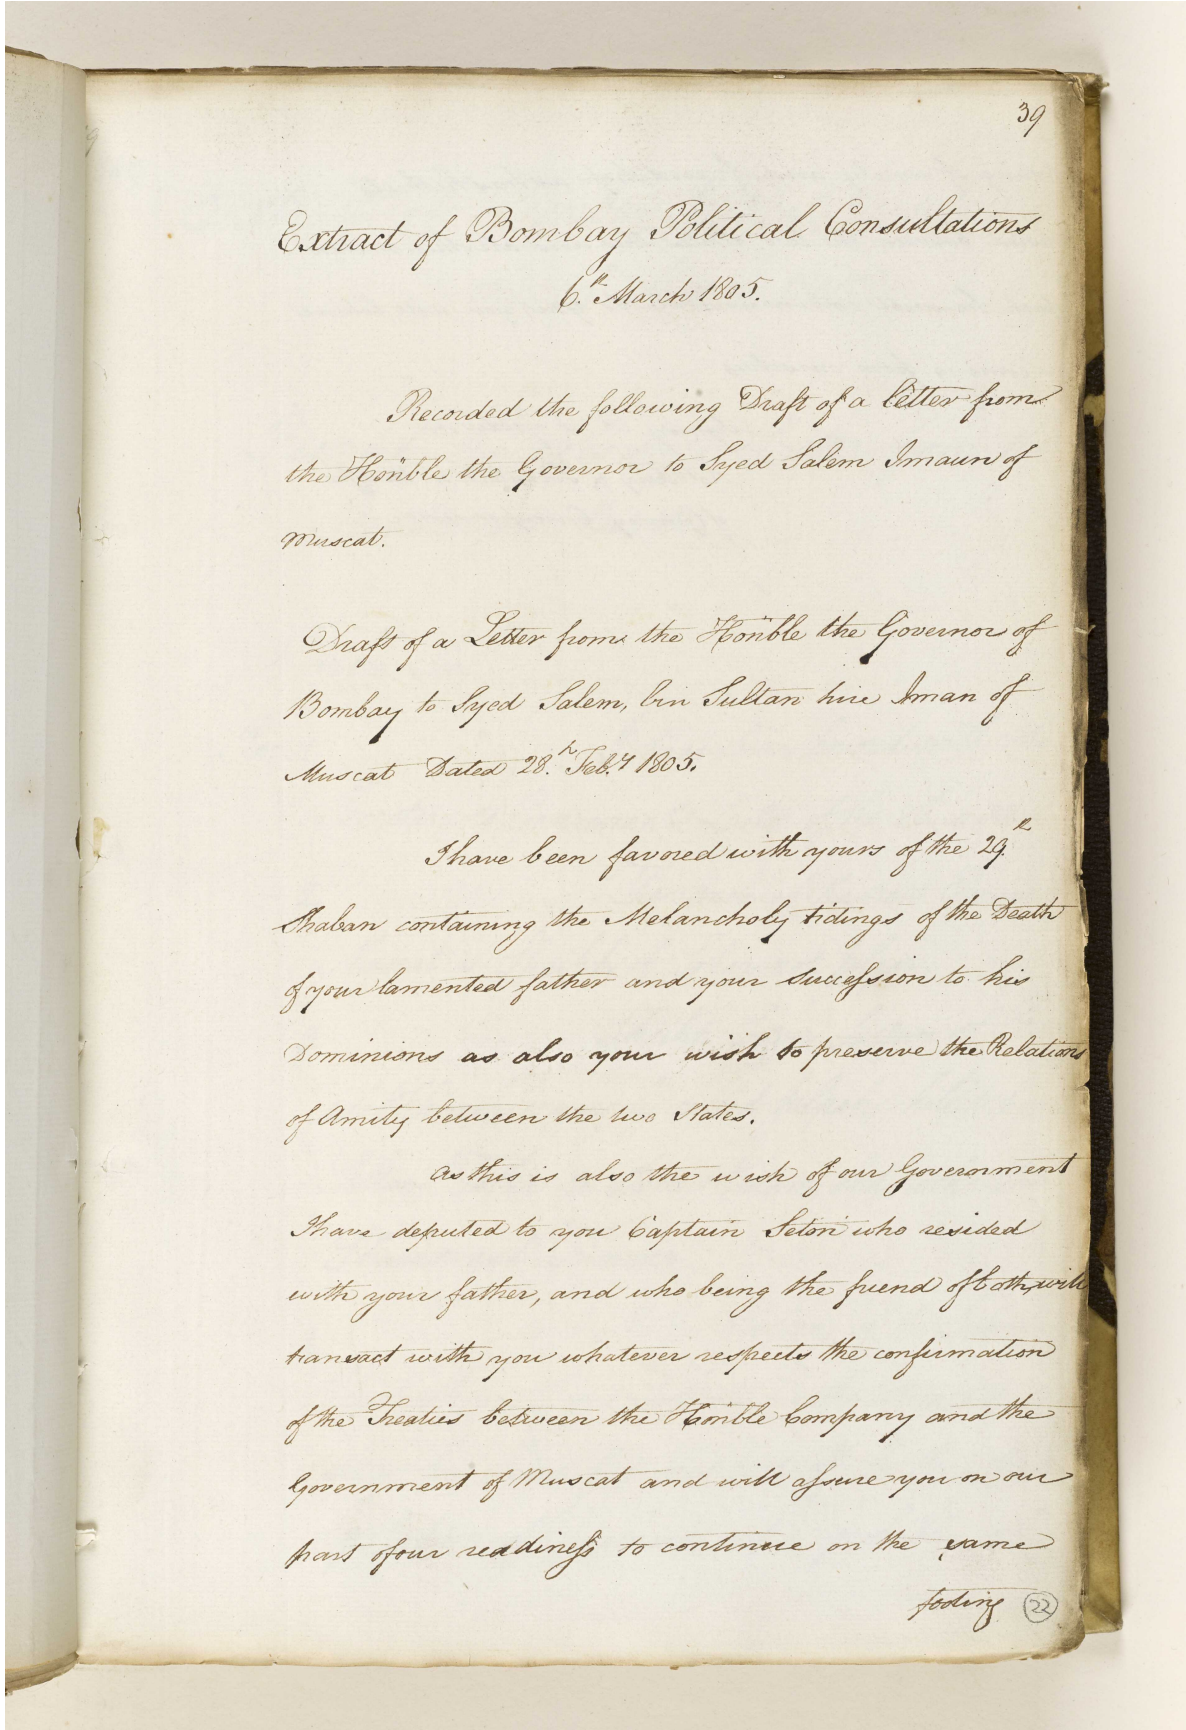 39
Extract of Bombay Political Consultations
6.th March 1805.
Recorded the following Draft of a letter from
the Honble the Governor to Syed Salem Imaun of
Muscat.
Draft of a Letter from the Honble the Governor of
Bombay to Syed Salem, bin Sultan Iman of
Muscat Dated 28.th Feb.y 1805.
I have been favored with yours of the 29.th
Shaban containing the Melancholy tidings of the Death
of your lamented father and your Succession to his
Dominions as also your wish to preserve the Relations
of Amity between the two States.
As this is also the wish of our Government
I have deputed to you Captain Seton who resided
with your father, and who being the friend of both, will
transact with you whatever respects the confirmation
of the Treaties between the Honble Company and the
Government of Muscat and will assure you on our
part of our readiness to continue on the same
footing
22